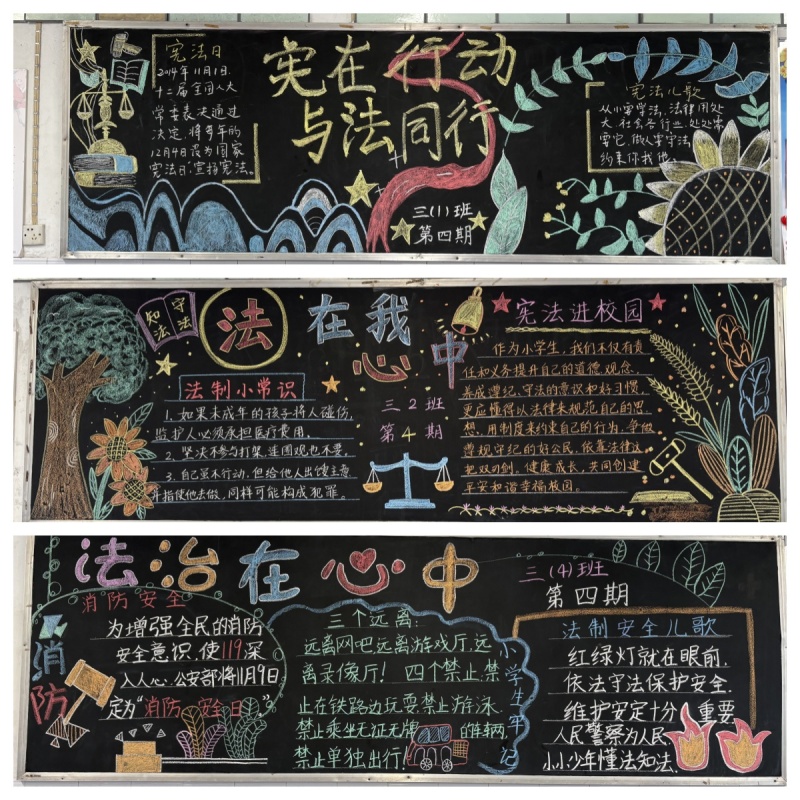 宪法日
2014年11月1日.
十二届全国人大
常委表决通过
决定,将每年的
12月4日设为国家
宪法日"宣扬宪法.
宪在行动
与法同行
三(1)班
第四期
宪法儿歌
从小要学法,法律用处
大.社会各行业,处处需
要它,做人要守法
约束你我他.
知法
守法
法在我心中
三2班
第4期
法制小常识
1、如果未成年的孩子将人碰伤,
监护人必须承担医疗费用.
2、坚决不参与打架,连围观也不要.
3、自己虽不行动,但给他人出馊主意
并指使他去做,同样可能构成犯罪。
宪法进校园
作为小学生,我们不仅有责
任和义务提升自己的道德观念,
养成遵纪、守法的意识和好习惯
更应懂得以法律来规范自己的思
想、用制度来约束自己的行为,争做
遵规守纪的好公民,依靠法律这
把双刃剑,健康成长,共同创建
平安和谐幸福校园。
法治在心中
三(4)班
第四期
消防安全
消防
为增强全民的消防
安全意识,使119深
入人心,公安部将11月9日
定为"消防安全日"
三个远离:
远离网吧远离游戏厅,远
离录像厅!四个禁止,禁
止在铁路边玩耍禁止游泳.
禁止乘坐无证无牌的车辆,
禁止单独出行!
小学生牢记
法制安全儿歌
红绿灯就在眼前.
依法守法保护安全.
维护安定十分重要
人民警察为人民.
小小少年懂法知法.